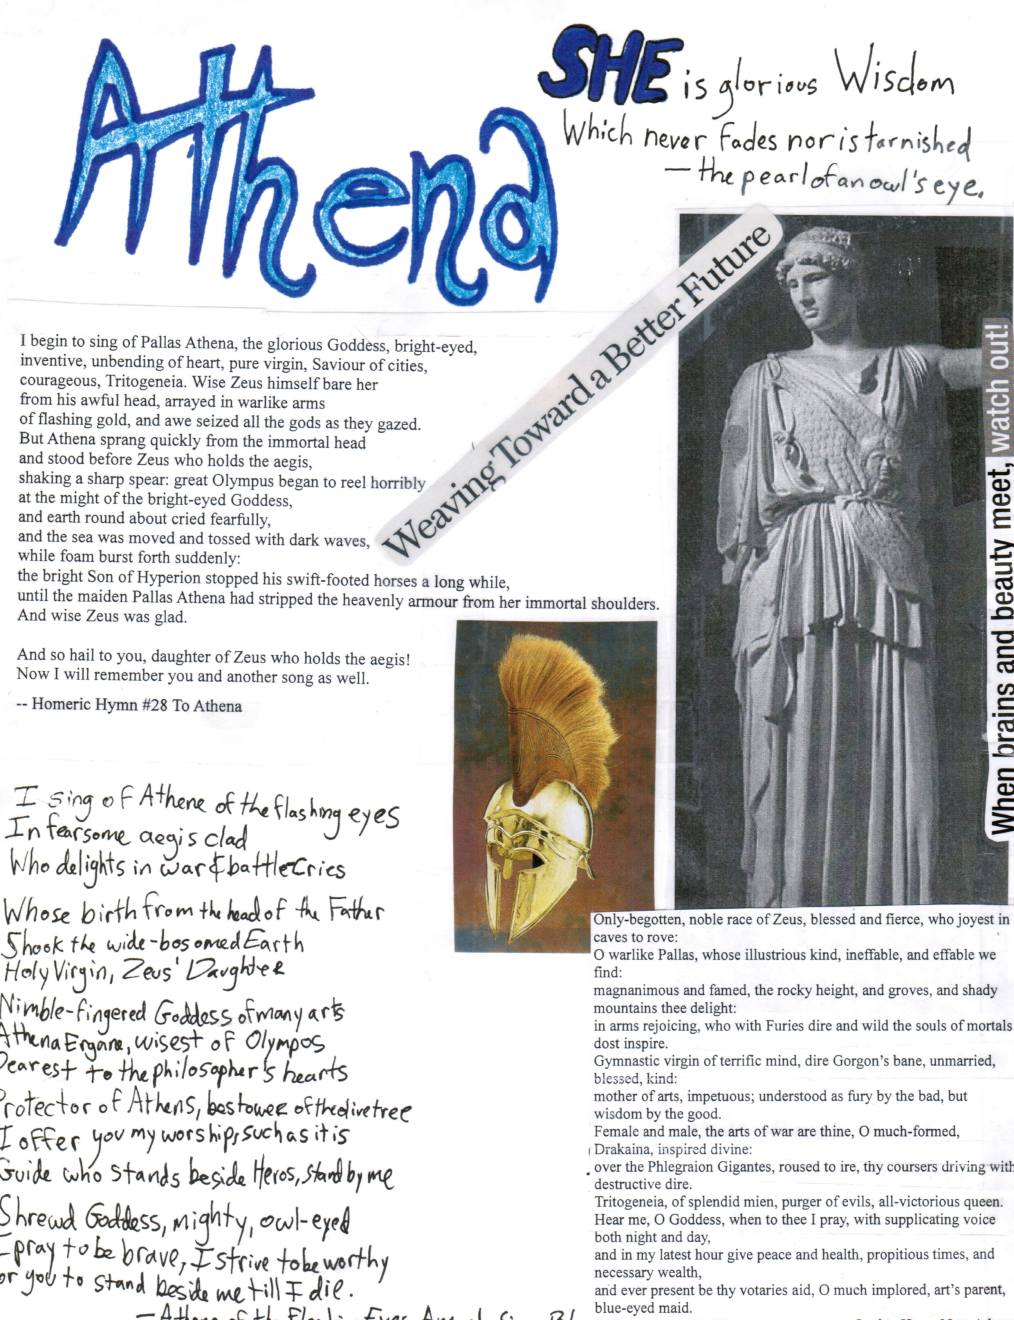 Athena
SHE is glorious Wisdom
Which never fades nor is tarnished
— the pearl of an owl's eye.
Weaving Toward a Better Future
When brains and beauty meet, watch out!
I begin to sing of Pallas Athena, the glorious Goddess, bright-eyed,
inventive, unbending of heart, pure virgin, Saviour of cities,
courageous, Tritogeneia. Wise Zeus himself bare her
from his awful head, arrayed in warlike arms
of flashing gold, and awe seized all the gods as they gazed.
But Athena sprang quickly from the immortal head
and stood before Zeus who holds the aegis,
shaking a sharp spear: great Olympus began to reel horribly
at the might of the bright-eyed Goddess,
and earth round about cried fearfully,
and the sea was moved and tossed with dark waves,
while foam burst forth suddenly:
the bright Son of Hyperion stopped his swift-footed horses a long while,
until the maiden Pallas Athena had stripped the heavenly armour from her immortal shoulders.
And wise Zeus was glad.
And so hail to you, daughter of Zeus who holds the aegis!
Now I will remember you and another song as well.
-- Homeric Hymn #28 To Athena
I sing of Athene of the flashing eyes
In fearsome aegis clad
Who delights in war & battle cries
Whose birth from the head of the Father
Shook the wide-bosomed Earth
Holy Virgin, Zeus' Daughter
Nimble-fingered Goddess of many arts
Athena Ergane, wisest of Olympos
Dearest to the philosopher's hearts
Protector of Athens, bestower of the olive tree
I offer you my worship, such as it is
Guide who stands beside Heros, stand by me
Shrewd Goddess, mighty, owl-eyed
I pray to be brave, I strive to be worthy
For you to stand beside me till I die.
Only-begotten, noble race of Zeus, blessed and fierce, who joyest in
caves to rove:
O warlike Pallas, whose illustrious kind, ineffable, and effable we
find:
magnanimous and famed, the rocky height, and groves, and shady
mountains thee delight:
in arms rejoicing, who with Furies dire and wild the souls of mortals
dost inspire.
Gymnastic virgin of terrific mind, dire Gorgon's bane, unmarried,
blessed, kind:
mother of arts, impetuous; understood as fury by the bad, but
wisdom by the good.
Female and male, the arts of war are thine, O much-formed,
Drakaina, inspired divine:
over the Phlegraion Gigantes, roused to ire, thy coursers driving with
destructive dire.
Tritogeneia, of splendid mien, purger of evils, all-victorious queen.
Hear me, O Goddess, when to thee I pray, with supplicating voice
both night and day,
and in my latest hour give peace and health, propitious times, and
necessary wealth,
and ever present be thy votaries aid, O much implored, art's parent,
blue-eyed maid.